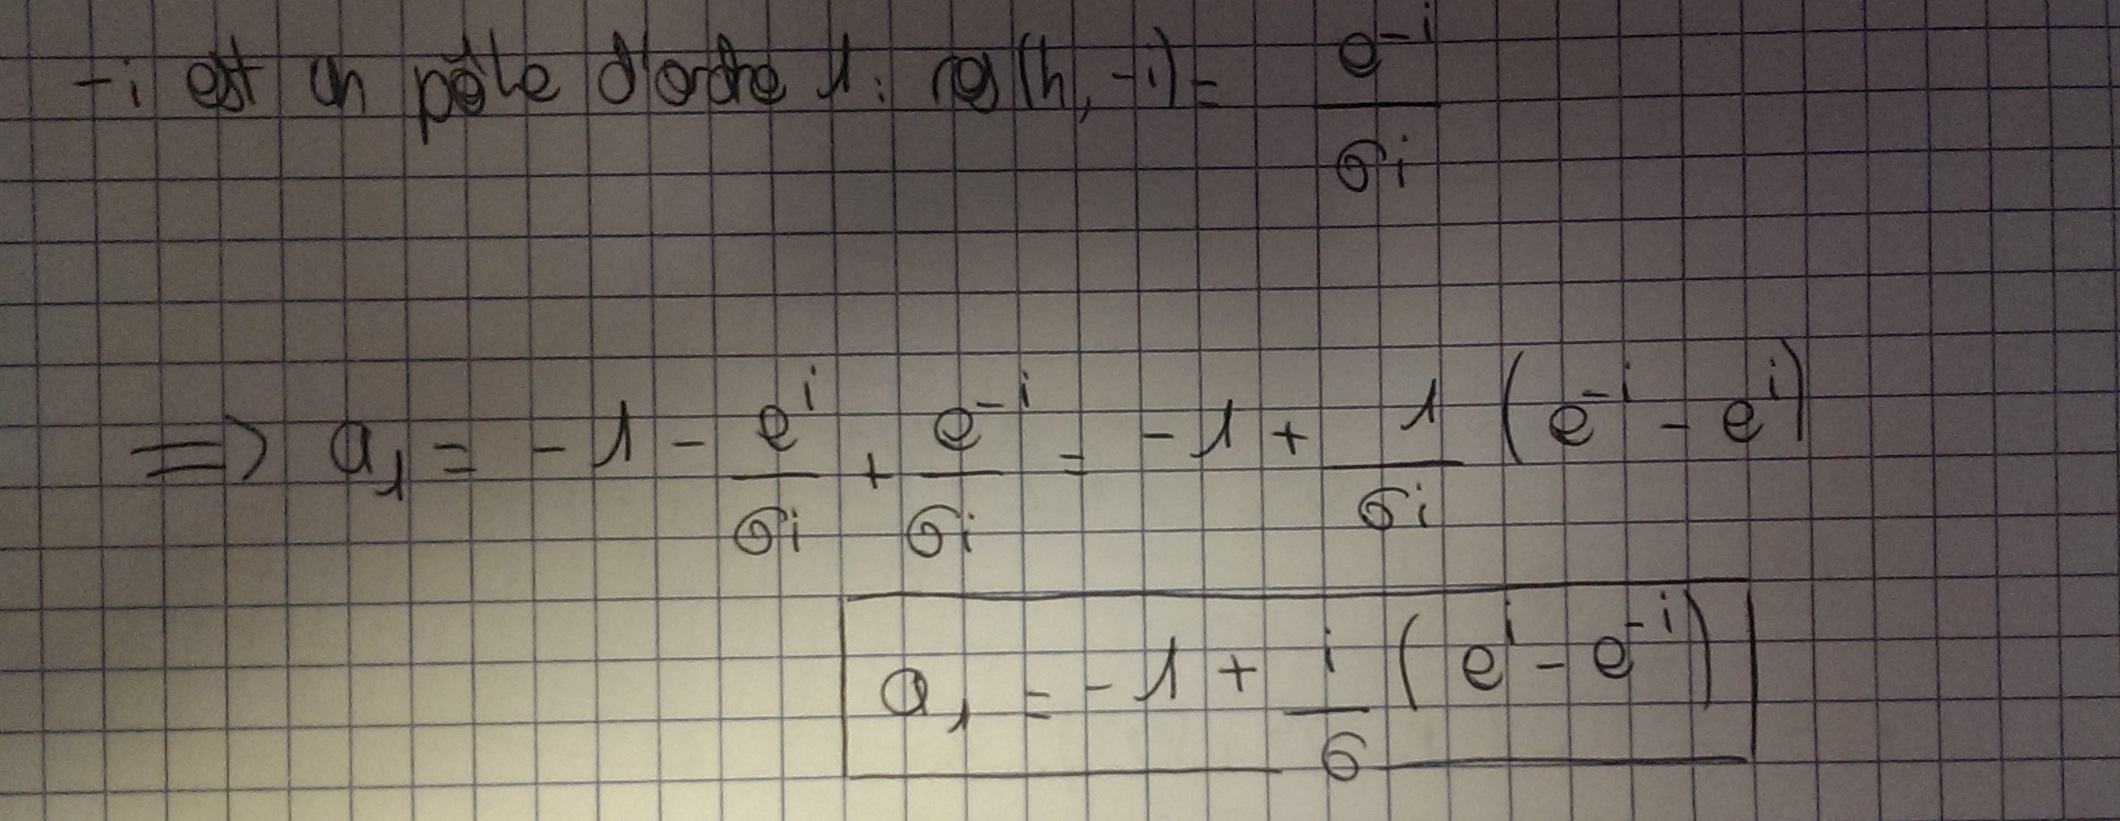 -i est un pôle d'ordre 1 : res(h, -i) = e^{-i} / 6i
=> a₁ = -1 - e^{i}/6i + e^{-i}/6i = -1 + 1/6i (e^{-i} - e^{i})
a₁ = -1 + i/6 (e^{i} - e^{-i})